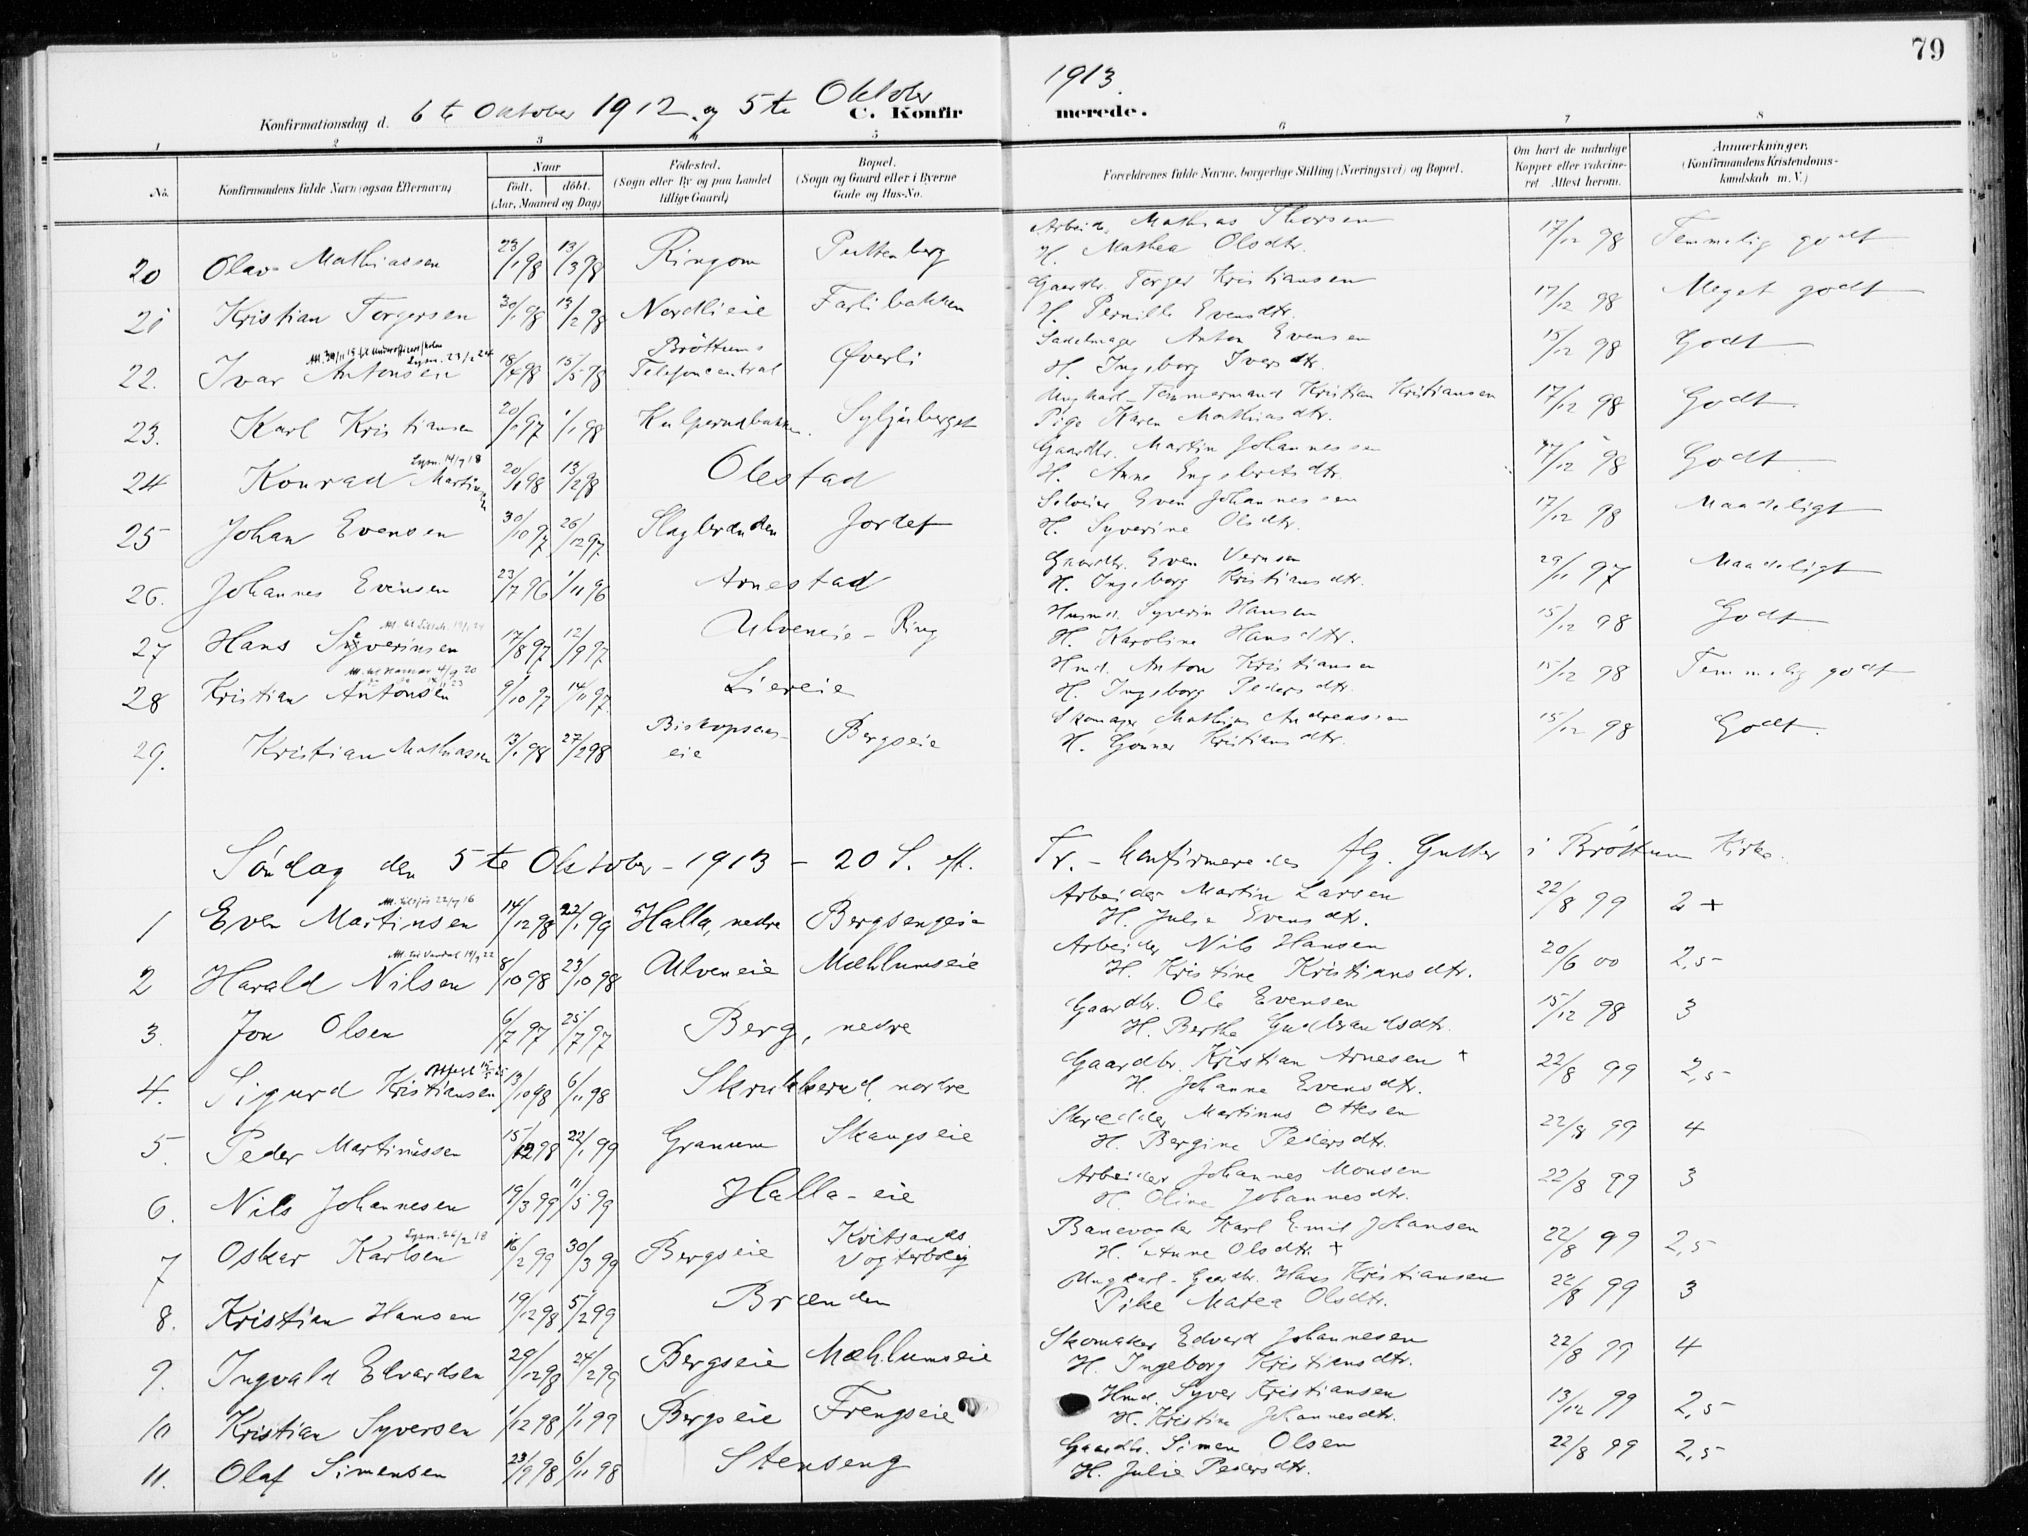 79
Konfirmationsdag d. 6te Oktober 1912 og 5te Oktober 1913.
C. Konfirmerede.
1 2 3 4 5 6 7 8
No. Konfirmandens fulde Navn (ogsaa Efternavn) Naar født, døbt. (Aar, Maaned og Dag) Fødested. (Sogn eller By og paa Landet tillige Gaard) Bopæl. (Sogn og Gaard eller i Byerne Gade og Hus-No. Forældrenes fulde Navne, borgerlige Stilling (Næringsvei) og Bopæl. Om havt de naturlige Kopper eller vaccineret Attest herom. Anmærkninger. (Konfirmandens Kristendomskundskab m. V.)
20 Olav Mathiassen 23/1 98 13/3 98 Ringom Puttenberg Arbeid. Mathias Thorsen 17/12 98 Temmelig godt
H. Mathea Olsdtr.
21 Kristian Torgersen 30/1 98 13/2 98 Nordlieie Farlibakken Gaardbr. Torger Kristiansen 17/12 98 Meget godt
H. Pernille Evensdtr.
22. Ivar Antonsen 18/4 98 15/5 98 Brøttums Telefoncentral Øverli Sadelmager Anton Evensen 15/12 98 Godt
H. Ingeborg Iversdtr.
23. Karl Kristiansen 20/1 97 1/1 98 Kulperudbakken Syljuberget Ungkarl Tømmermand Kristian Kristiansen 17/12 98 Godt.
Pige Karen Mathiasdtr.
24 Konrad Martinsen Lysn. 14/9 18 20/1 98 13/2 98 Olestad Gaardbr. Martin Johannessen 17/12 98 Godt
H. Anne Engebretsdtr.
25 Johan Evensen 30/10 97 26/12 97 Slagbrenden Jordet Selveier Even Johannessen 17/12 98 Maadeligt
H. Syverine Olsdtr.
26. Johannes Evensen 23/7 96 1/11 96 Arnestad Gaardbr. Even Vernsen 29/11 97 Maadeligt
H. Ingeborg Kristiansdtr.
27 Hans Syverinsen 17/8 97 12/9 97 Ulveneie - Ring Husmd. Syverin Hansen 15/12 98 Godt
H. Karoline Hansdtr.
28 Kristian Antonsen 9/10 97 14/11 97. Liereie Hmd. Anton Kristiansen 15/12 98 Temmelig godt
H. Ingeborg Pedersdtr.
29. Kristian Mathiassen 3/1 98 27/2 98 Biskopsaas-eie Bergseie Skomager Mathias Andreassen 15/12 98 Godt.
H. Gønner Kristiansdtr.
Søndag den 5te Oktober - 1913 - 20 S. eft. Tr. - konfirmeredes flg. Gutter i Brøttum Kirke.
1 Even Martinsen 14/12 98 22/1 99 Halla, nedre Bergsengeie Arbeider Martin Larsen 22/8 99 2 +
H. Julie Evensdtr.
2 Harald Nilsen 8/10 98 23/10 98 Ulveneie Mæhlumseie Arbeider Nils Hansen 20/6 00 2,5
H. Kristine Kristiansdtr.
3. Jon Olsen 6/7 97 25/7 97 Berg, nedre Gaardbr. Ole Evensen 15/12 98 3
H. Berthe Gudbrandsdtr.
4. Sigurd Kristiansen 13/10 98 6/11 98 Skrukkerud, nordre Gaardbr. Kristian Arnesen + 22/8 99 2,5
H. Johanne Evensdtr.
5. Peder Martinussen 15/12 98 22/1 99 Granum Skaugseie Skredder Martinus Ottesen 22/8 99 4
H. Bergine Pedersdtr.
6. Nils Johannesen 19/3 99 11/5 99 Halla - eie Arbeider Johannes Monsen 22/8 99 3
H. Oline Johannesdtr.
7 Oskar Karlsen 16/2 99 30/3 99 Bergseie Kvitsands Vogterbolig Banevogter Karl Emil Johansen 22/8 99 2,5
H. Anne Olsdtr. +
8. Kristian Hansen 19/12 98 5/2 99 Brænden Ungkarl - Gaardbr. Hans Kristiansen 22/8 99 3
Pike Matea Olsdtr.
9. Ingvald Edvardsen 29/12 98 24/2 99 Bergseie Mæhlumseie Skomaker Edvard Johannesen 22/8 99 4
H. Ingeborg Kristiansdtr.
10 Kristian Syversen 1/12 98 1/1 99 Bergseie Frengseie Hmd. Syver Kristiansen 13/12 99 2,5
H. Kristine Johannesdtr.
11. Olaf Simensen 23/9 98 6/11 98 Stenseng Gaardbr. Simen Olsen 22/8 99 2,5
H. Julie Pedersdtr.